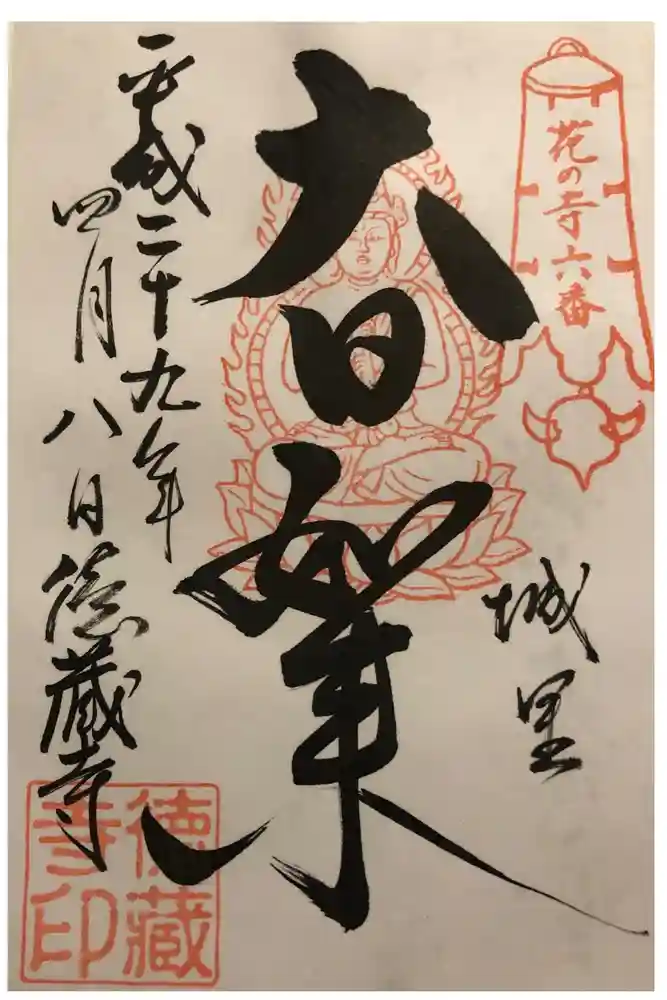 花の寺六番
城里
大日如来
平成二十九年
四月八日徳蔵寺
徳藏
寺印